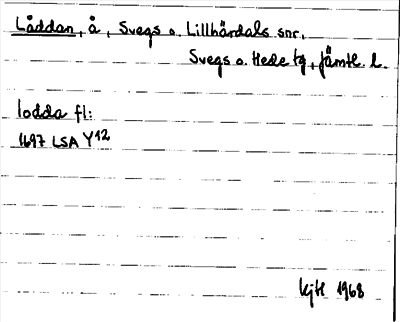 Låddan, å, Svegs o. Lillhärdals snr,
Svegs o. Hede tg, Jämtl. l.
lodda fl:
1697 LSA Y12
1968